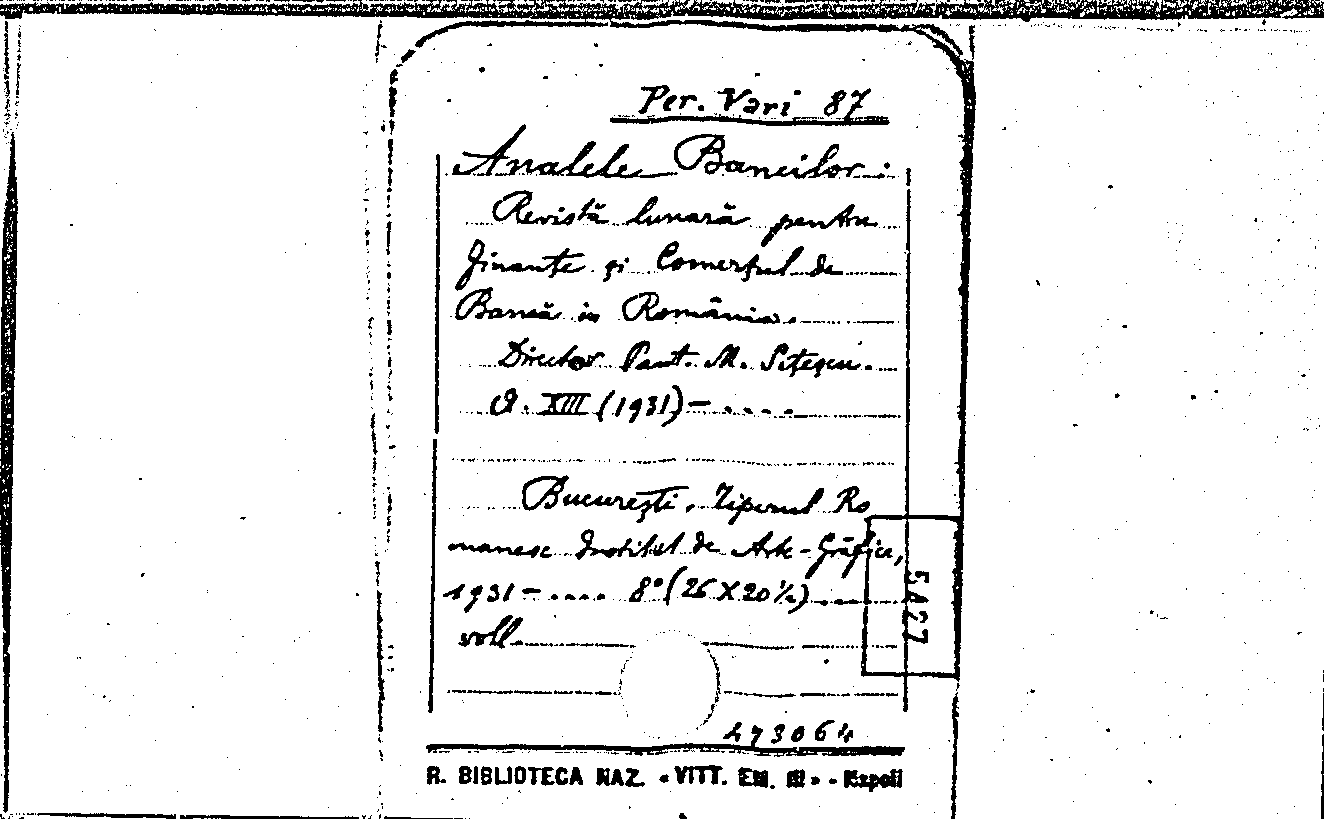 Per. Vari 87
Analele Bancilor:
Revistă lunară pentru
Finanțe și Comerțul de
Bancă in România.
Director Pant. M. Sițeșcu.
A. XIII (1931) - ....
București, Tiparul Ro
manesc Institut de Arte-Grăfice,
1931 - .... 8° (26 X 20 ½) ....
voll
5427
273064
R. BIBLIOTECA NAZ. «VITT. EM. III» - Napoli